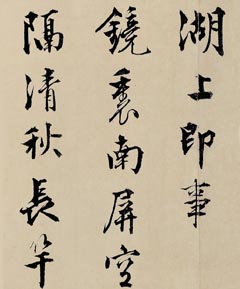 湖上即事
鏡裏南屏空
隔清秋長竿